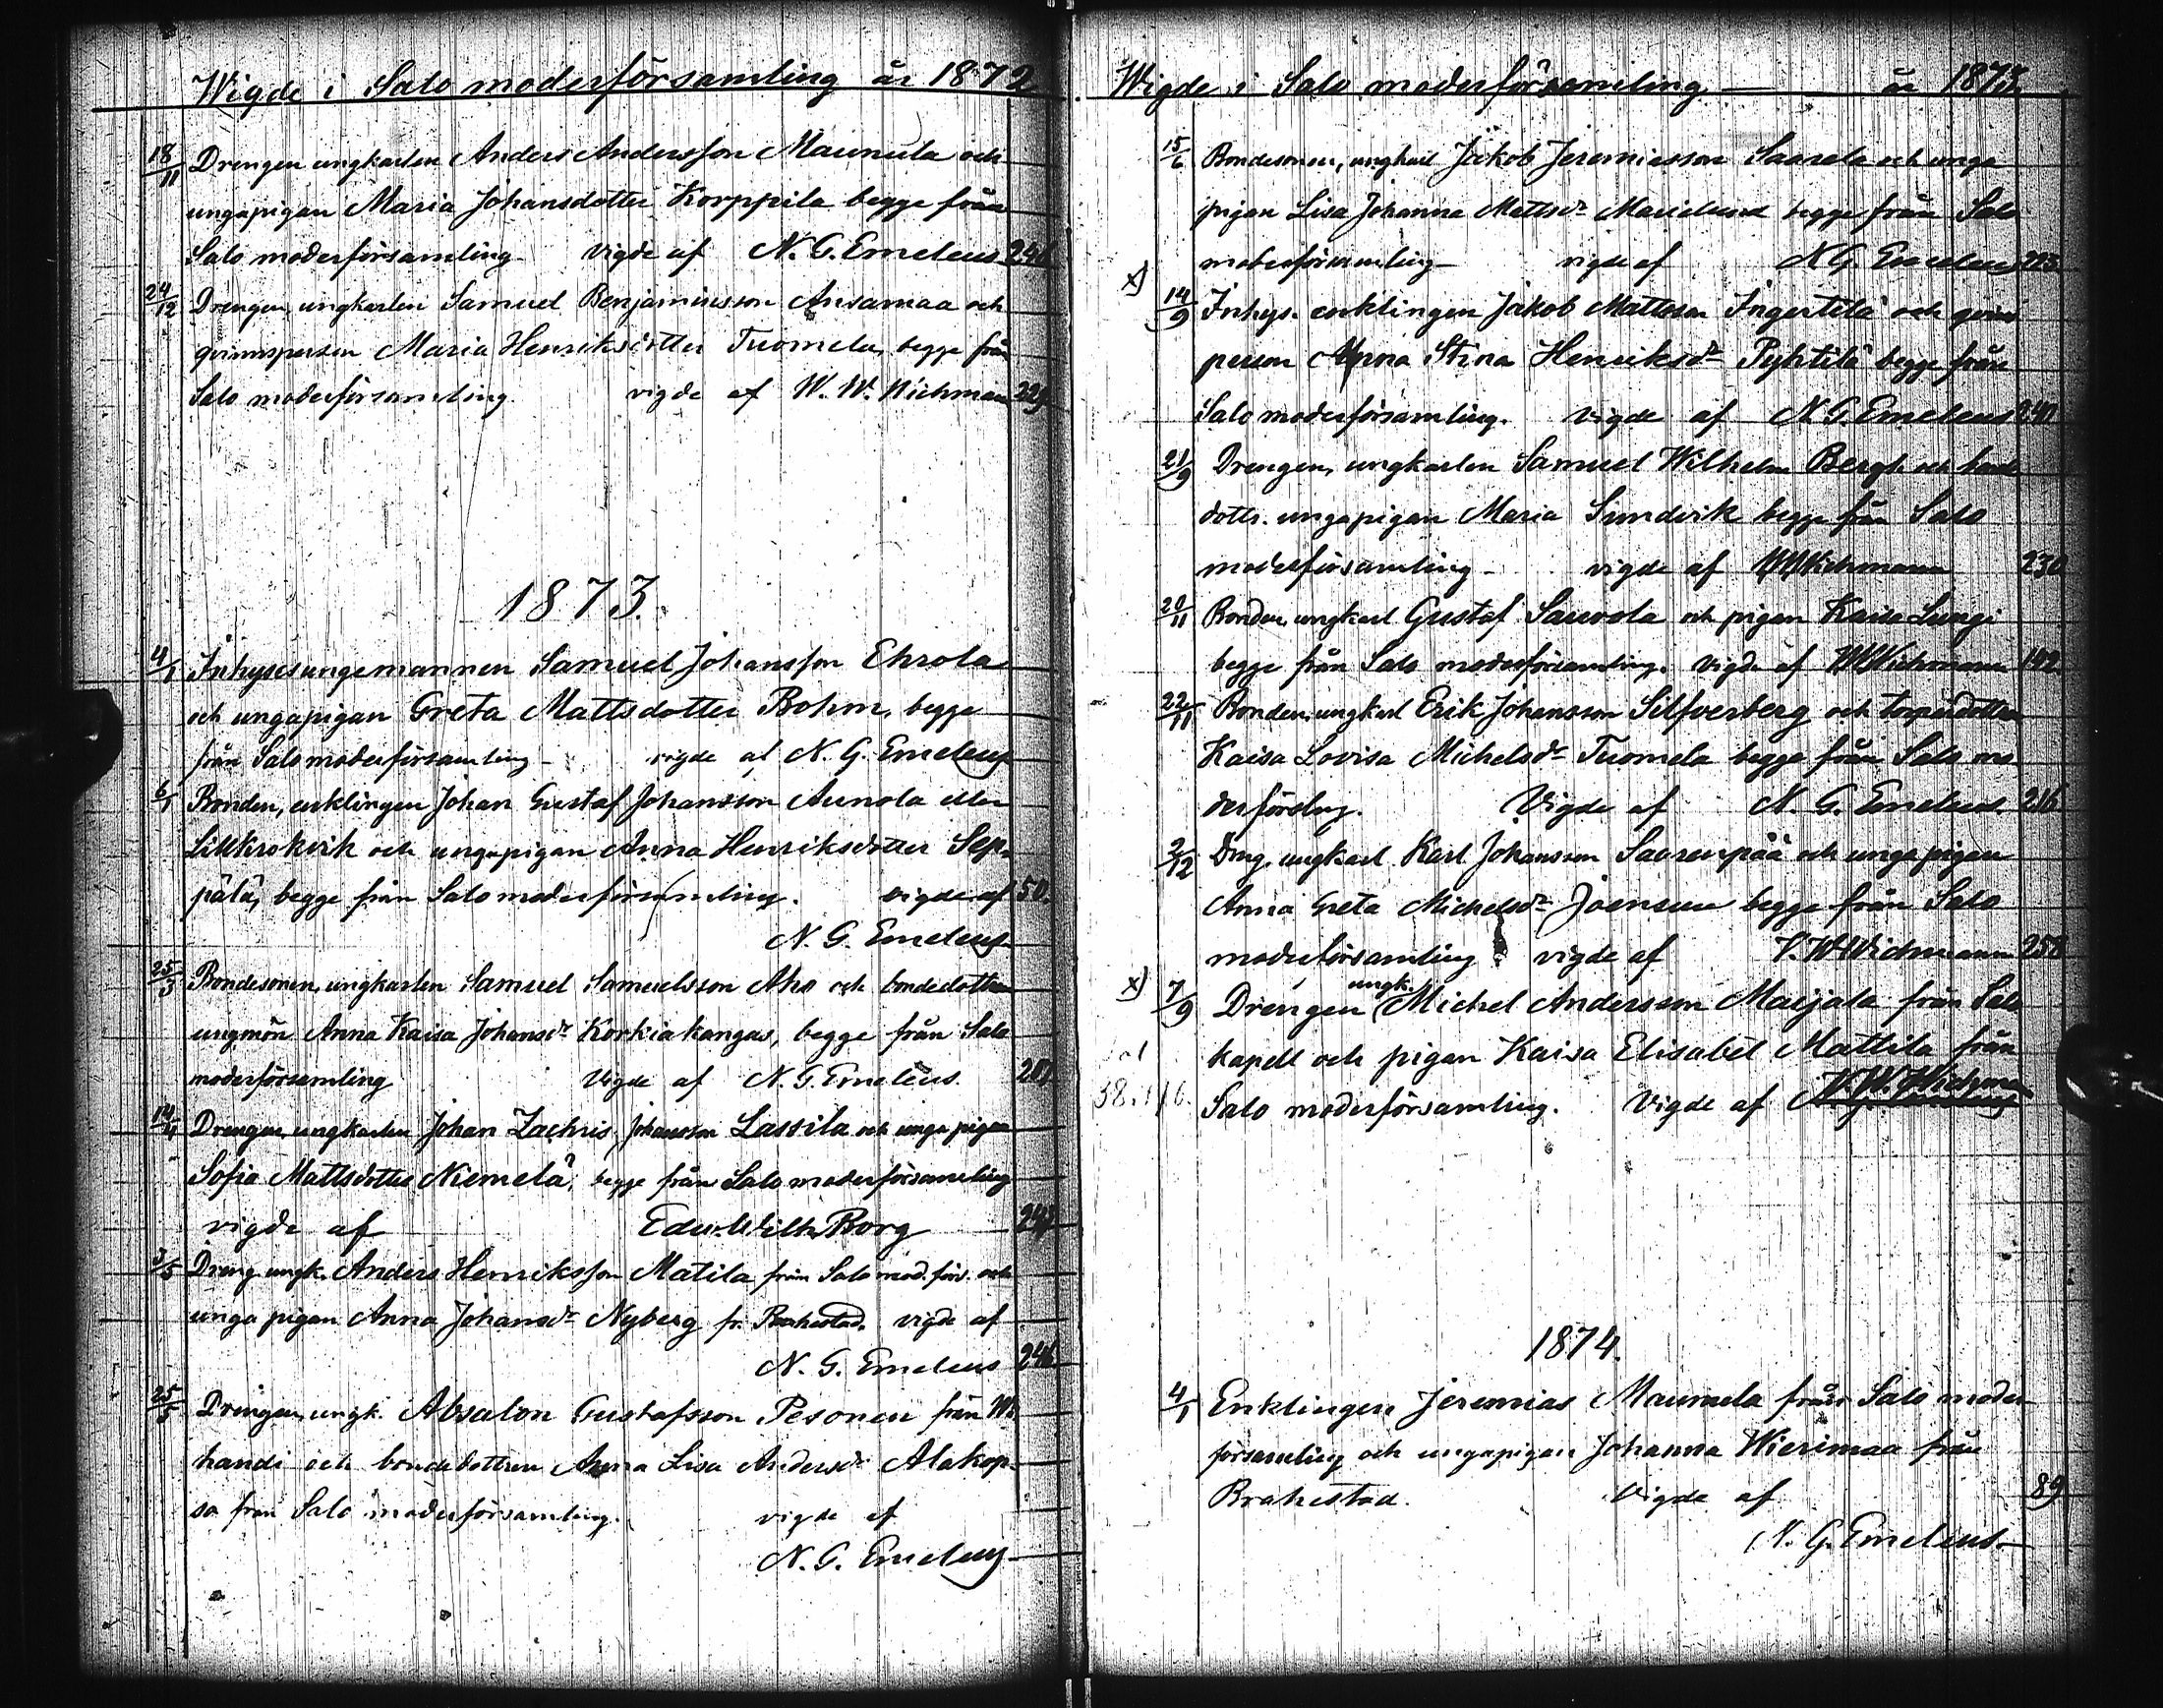 Wigde i Salo moderförsamling år 1872
18/11 Drengen ungkarlen Anders Andersson Maunula och
ungapigan Maria Johansdotter Korppila begge från
Salo moderförsamling vigde af N. G. Emeleus 246
24/12 Drengen, ungkarlen Samuel Benjaminsson Ansamaa och
qvinnsperson Maria Henriksdotter Tuomela, begge från
Salo moderförsamling. vigde af W. W. Wichmann 229
1873.
4/1 Inhysesungemannen Samuel Johansson Ehrola
och ungapigan Greta Mattsdotter Bohm, begge
från Salo moderförsamling – vigde af N. G. Emeleus
6/1 Bonden, enklingen Johan Gustaf Johansson Annola eller
och ungapigan Anna Henriksdotter Sep-
pälä, begge från Salo moderförsamling. vigde af 50.
N. G. Emeleus
25/3 Bondesonen, ungkarlen Samuel Samuelsson Aho och bondedottren
ungmön Anna Kaisa Johansdr Korkiakangas, begge från Salo
moderförsamling Vigde af N. G. Emeleus.
14/4 Drengen, ungkarlen Johan Zachris Johansson Lassila och unga pigan
Sofia Mattsdotter Niemelä, begge från Salo moderförsamling
vigde af Edw. Wilh. Borg
3/5 Dreng. ungk. Anders Henriksson Matila från Salo mod. förs. och
unga pigan Anna Johansdr Nyberg fr. Brahestad. vigde af
N. G. Emeleus 246
25/5 Drengen, ungk. Absalon Gustafsson Pesonen från Wi-
handi och bondedottren Anna Lisa Andersdr Alakop-
sa från Salo moderförsamling. vigde af
N. G. Emeleus
Wigde i Salo moderförsamling – år 1873
15/6 Bondesonen, ungkarl Jakob Jeremiasson Saarela och unga
pigan Lisa Johanna Mattsdr Marielund begge från Salo
moderförsamling – vigde af N. G. Emeleus 223
x) 14/9 Inhys. enklingen Jakob Mattsson Ingertilä och qvinns
person Anna Stina Henriksdr Pyhtilä begge från
Salo moderförsamling. vigde af N. G. Emeleus 240
21/9 Drengen, ungkarlen Samuel Wilhelm Bergh och bonde
dottr. ungapigan Maria Sundvik begge från Salo
moderförsamling – vigde af W W Wichmann 230
20/11 Bonden, ungkarl Gustaf Sauvola och pigan Kaisa Lungi
begge från Salo moderförsamling. vigde af W W Wichmann 142
22/11 Bonden, ungkarl Erik Johansson Silfverberg och torparedottren
Kaisa Lovisa Michelsdr Tuomela begge från Salo mo
derförslng. Vigde af N. G. Emeleus. 216
2/12 Drng. ungkarl Karl Johansson Saarenpää och unga pigan
Anna Greta Michelsdr Joensuu begge från Salo
moderförsamling vigde af V. W Wichmann 258
x) 7/9 Drengen ungk. Michel Andersson Maijala från Salo
kapell och pigan Kaisa Elisabet Mattila från
Salo moderförsamling. Vigde af W. W. Wichmann
1874.
4/1 Enklingen Jeremias Maunula från Salo moder
församling och ungapigan Johanna Wierimaa från
Brahestad. Vigde af 89
N. G. Emeleus.